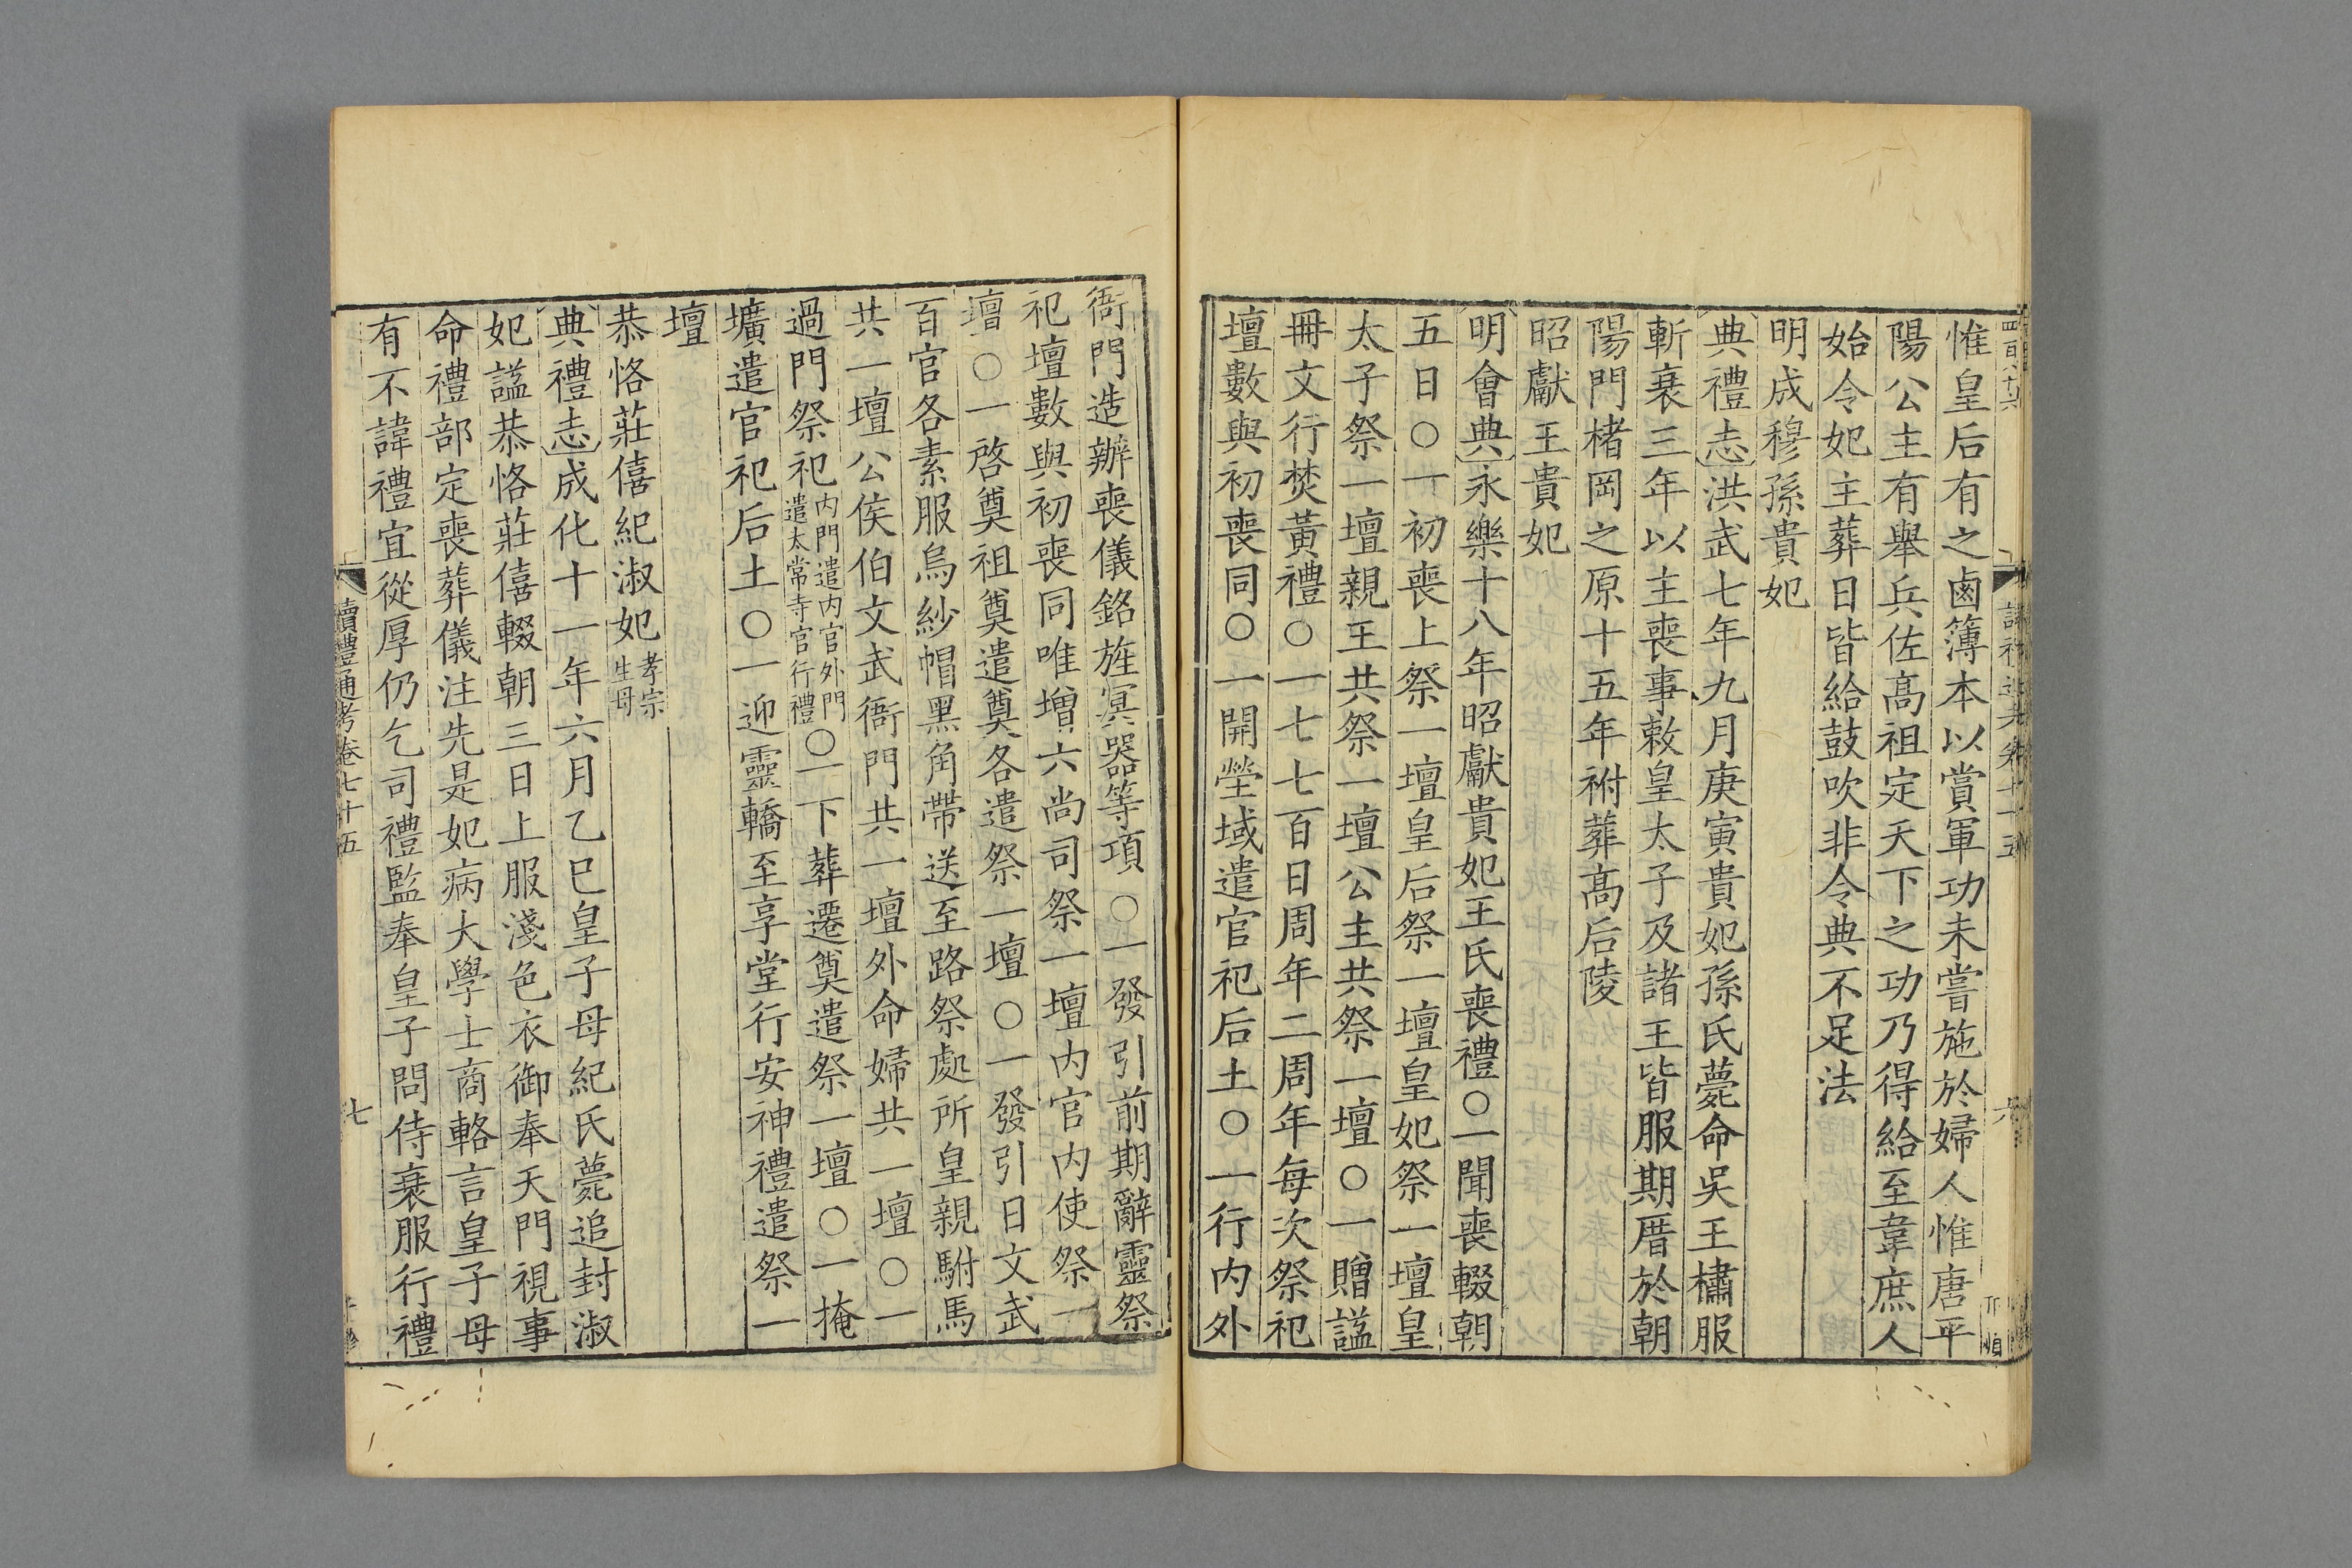 惟皇后有之鹵簿本以賞軍功未嘗施於婦人惟唐平
陽公主有舉兵佐高祖定天下之功乃得給至韋庶人
始令妃主葬日皆給鼓吹非令典不足法
明成穆孫貴妃
典禮志洪武七年九月庚寅貴妃孫氏薨命吳王橚服
斬衰三年以主喪事敕皇太子及諸王皆服期厝於朝
陽門楮岡之原十五年祔葬高后陵
昭獻王貴妃
明會典永樂十八年昭獻貴妃王氏喪禮○一聞喪輟朝
五日○一初喪上祭一壇皇后祭一壇皇妃祭一壇皇
太子祭一壇親王共祭一壇公主共祭一壇○一贈諡
冊文行焚黃禮○一七七百日周年二周年每次祭祀
壇數與初喪同○一開塋域遣官祀后土○一行內外
衙門造辦喪儀銘旌冥器等項○一發引前期辭靈祭
祀壇數與初喪同唯增六尚司祭一壇內官內使祭一
壇○一啓奠祖奠遣奠各遣祭一壇○一發引日文武
百官各素服烏紗帽黑角帶送至路祭處所皇親駙馬
共一壇公侯伯文武衙門共一壇外命婦共一壇○一
過門祭祀內門遣內官外門遣太常寺官行禮○一下葬遷奠遣祭一壇○一掩
壙遣官祀后土○一迎靈轎至享堂行安神禮遣祭一
壇
恭恪莊僖紀淑妃孝宗生母
典禮志成化十一年六月乙巳皇子母紀氏薨追封淑
妃諡恭恪莊僖輟朝三日上服淺色衣御奉天門視事
命禮部定喪葬儀注先是妃病大學士商輅言皇子母
有不諱禮宜從厚仍乞司禮監奉皇子問侍衰服行禮
讀禮通考卷七十五
七